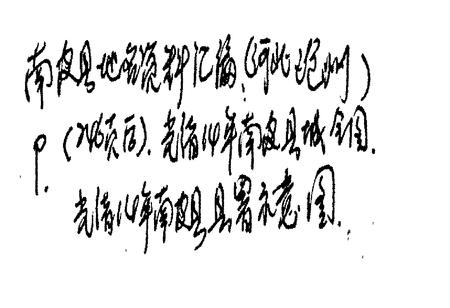 南皮县地名资料汇编（河北沧州）
P.（246页后）.光绪14年南皮县城全图.
光绪14年南皮县县署示意图.